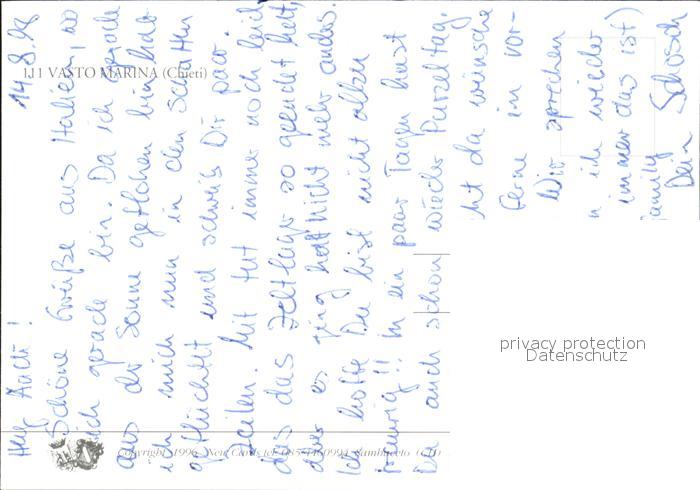 14.8.98
! 
Schöne Grüße aus Italien, wo
ich gerade bin. Da ich gerade
aus der Sonne geflohen bin, hab
ich mich nun in den Schatten
geflüchtet und schreib Dir paar
Zeilen. Mir tut immer noch leid
das das Zeltlager so geendet hat,
aber es ging halt nicht mehr anders.
Ich hoffe Du bist nicht allzu
traurig!! In ein paar Tagen hast
Du auch schon wieder Purzeltag,
ht da wünsche
ferne im vor-
Wir sprechen
n ich wieder
immer das ist)
family
Dein Schosch
111 VASTO MARINA (Chieti)
Copyright 1996 - New Cards tel. Sambuceto (CH)
privacy protection
Datenschutz